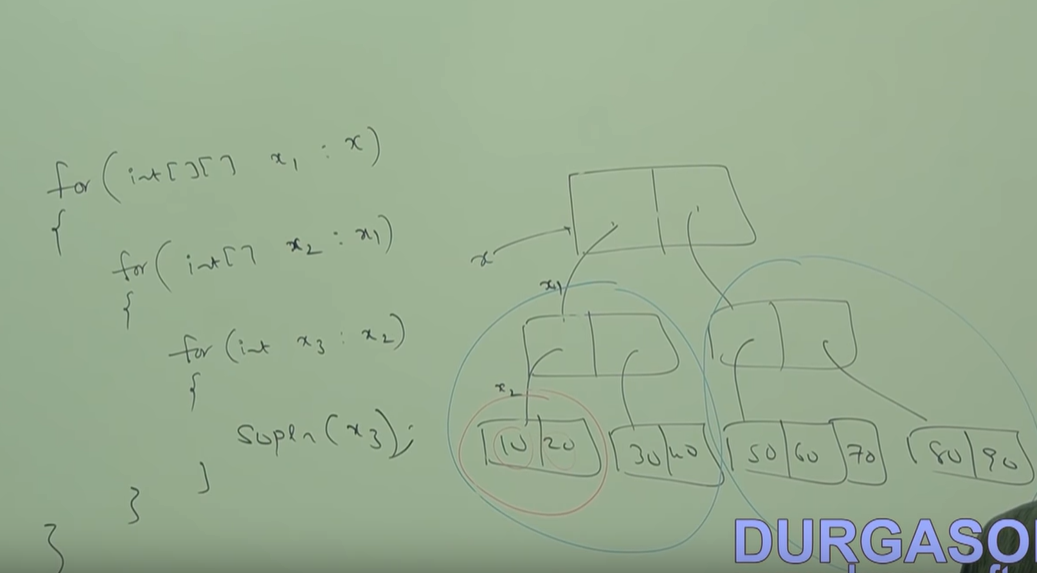 for(int[][] x1 : x)
{
for(int[] x2 : x1)
{
for(int x3 : x2)
{
sopln(x3);
}
}
}
x
x1
x2
10 20
30 40
50 60 70
80 90
DURGASO